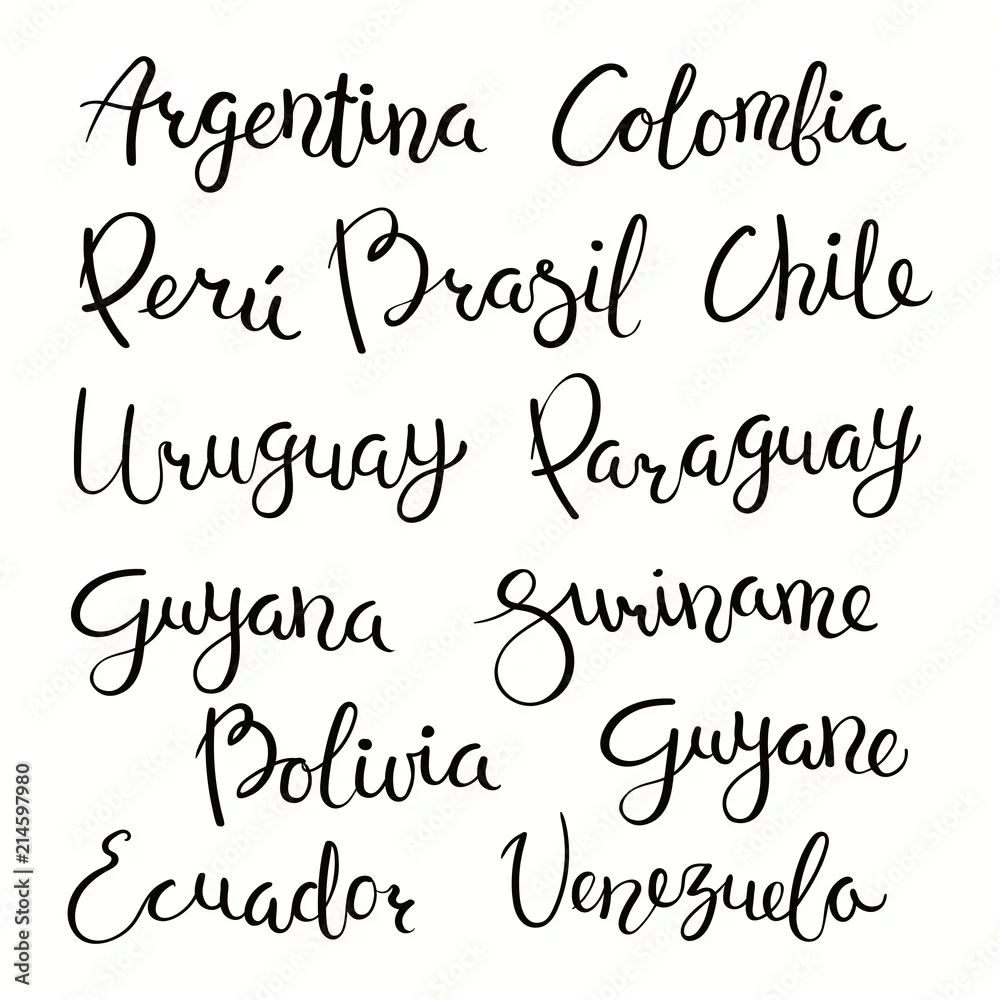 Argentina Colombia
Perú Brasil Chile
Uruguay Paraguay
Guyana Suriname
Bolivia Guyane
Ecuador Venezuela
Adobe Stock | #214597980